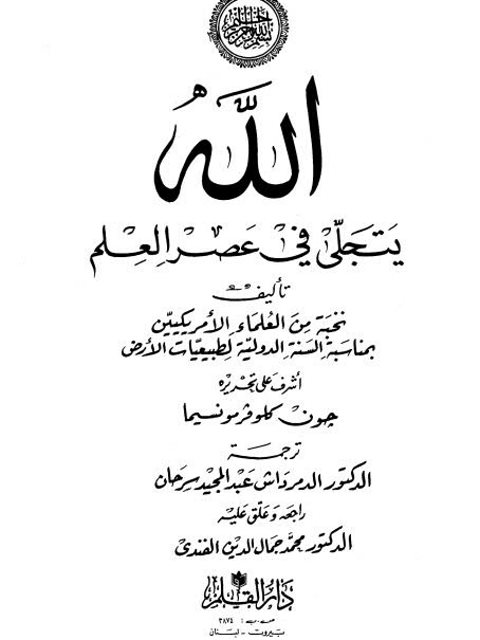 بسم الله الرحمن الرحيم
الله
يتجلى في عصر العلم
تأليف
نخبة من العلماء الأمريكيين
بمناسبة السنة الدولية لطبيعيات الأرض
أشرف على تحريره
جون كلوفر مونسيما
ترجمة
الدكتور الدمرداش عبد المجيد سرحان
راجعه وعلق عليه
الدكتور محمد جمال الدين الفندي
دار القلم
ص.ب: ٣٨٧٤
بيروت - لبنان